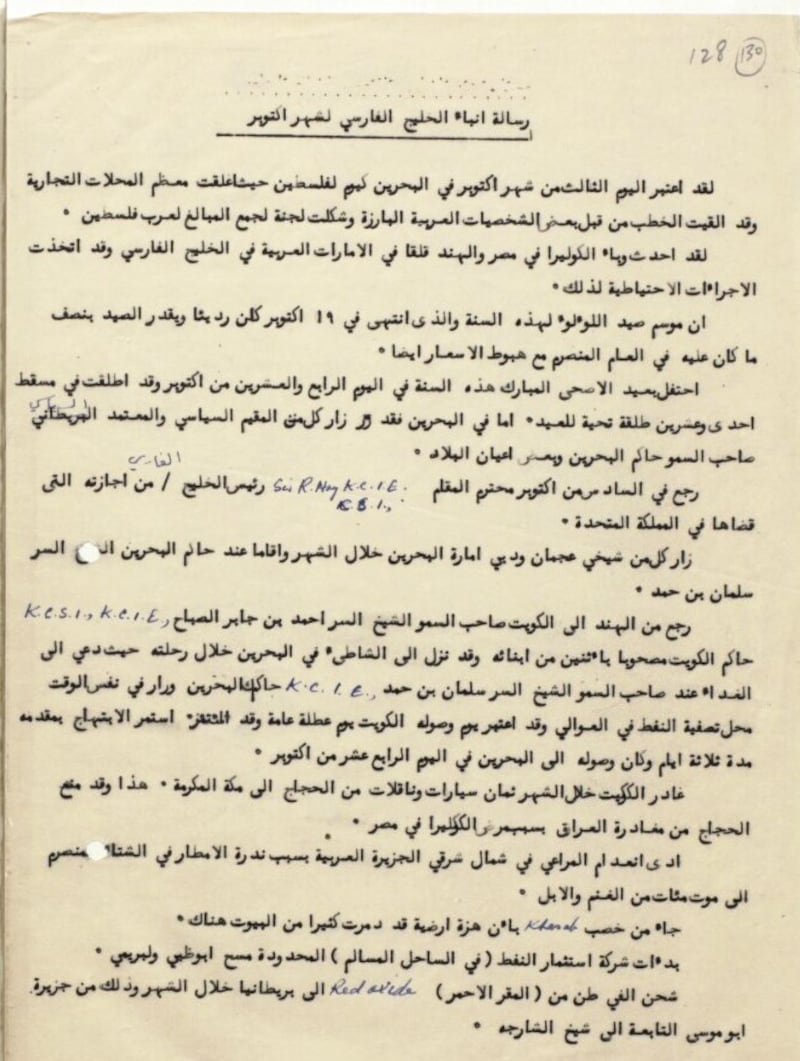 128 (130)
رسالة انباء الخليج الفارسي لشهر اكتوبر
لقد اعتبر اليوم الثالث من شهر اكتوبر في البحرين كيوم لفلسطين حيث اغلقت معظم المحلات التجارية
وقد القيت الخطب من قبل بعض الشخصيات العربية البارزة وشكلت لجنة لجمع المبالغ لعرب فلسطين •
لقد احدث وباء الكوليرا في مصر والهند قلقا في الامارات العربية في الخليج الفارسي وقد اتخذت
الاجراءات الاحتياطية لذلك•
ان موسم صيد اللوءلوء لهذه السنة والذى انتهى في ١٩ اكتوبر كان رديئا ويقدر الصيد بنصف
ما كان عليه في العام المنصرم مع هبوط الاسعار ايضا •
احتفل بعيد الاضحى المبارك هذه السنة في اليوم الرابع والعشرين من اكتوبر وقد اطلقت في مسقط
احدى وعشرين طلقة تحية للعيد• اما في البحرين فقد زار كل من المقيم السياسي والمعتمد السياسي
صاحب السمو حاكم البحرين وبعض اعيان البلاد •
رجع في السادس من اكتوبر محترم المقام Sir R. Hay K.C.I.E. رئيس الخليج / الفارسي من اجازته التى
C.S.I.,
قضاها في المملكة المتحدة •
زار كل من شيخي عجمان ودبي امارة البحرين خلال الشهر واقاما عند حاكم البحرين السر
سلمان بن حمد •
رجع من الهند الى الكويت صاحب السمو الشيخ السر احمد بن جابر الصباح K.C.S.I., K.C.I.E.,
حاكم الكويت مصحوبا باثنين من ابنائه وقد نزل الى الشاطىء في البحرين خلال رحلته حيث دعي الى
الغداء عند صاحب السمو الشيخ السر سلمان بن حمد K.C.I.E., حاكم البحرين وزار في نفس الوقت
محل تصفية النفط في العوالي وقد اعتبر يوم وصوله الكويت يوم عطلة عامة وقد استمر الابتهاج بمقدمه
مدة ثلاثة ايام وكان وصوله الى البحرين في اليوم الرابع عشر من اكتوبر •
غادر الكويت خلال الشهر ثمان سيارات وناقلات من الحجاج الى مكة المكرمة • هذا وقد منع
الحجاج من مغادرة العراق بسبب مرض الكوليرا في مصر •
ادى انعدام المراعي في شمال شرقي الجزيرة العربية بسبب ندرة الامطار في الشتاء المنصرم
الى موت مئات من الغنم والابل •
جاء من خصب Khasab بان هزة ارضية قد دمرت كثيرا من البيوت هناك •
بدءات شركة استثمار النفط (في الساحل المسالم) المحدودة مسح ابوظبي ولبريمي •
شحن الفي طن من (المقر الاحمر) Red oxide الى بريطانيا خلال الشهر وذلك من جزيرة
ابو موسى التابعة الى شيخ الشارجه •